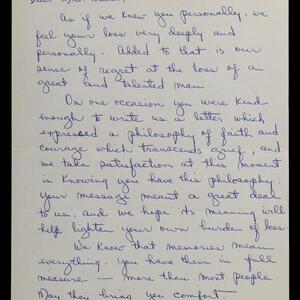 Dear Mrs.
As if we knew you personally, we
feel your loss very deeply and
personally. Added to that is our
sense of regret at the loss of a
great and talented man.
On one occasion you were kind
enough to write us a letter which
expressed a philosophy of faith and
courage which transcends grief, and
we take satisfaction at this moment
in knowing you have this philosophy.
Your message meant a great deal
to us, and we hope its meaning will
help lighten your own burden of loss.
We know that memories mean
everything. You have them in full
measure — more than most people.
May they bring you comfort.